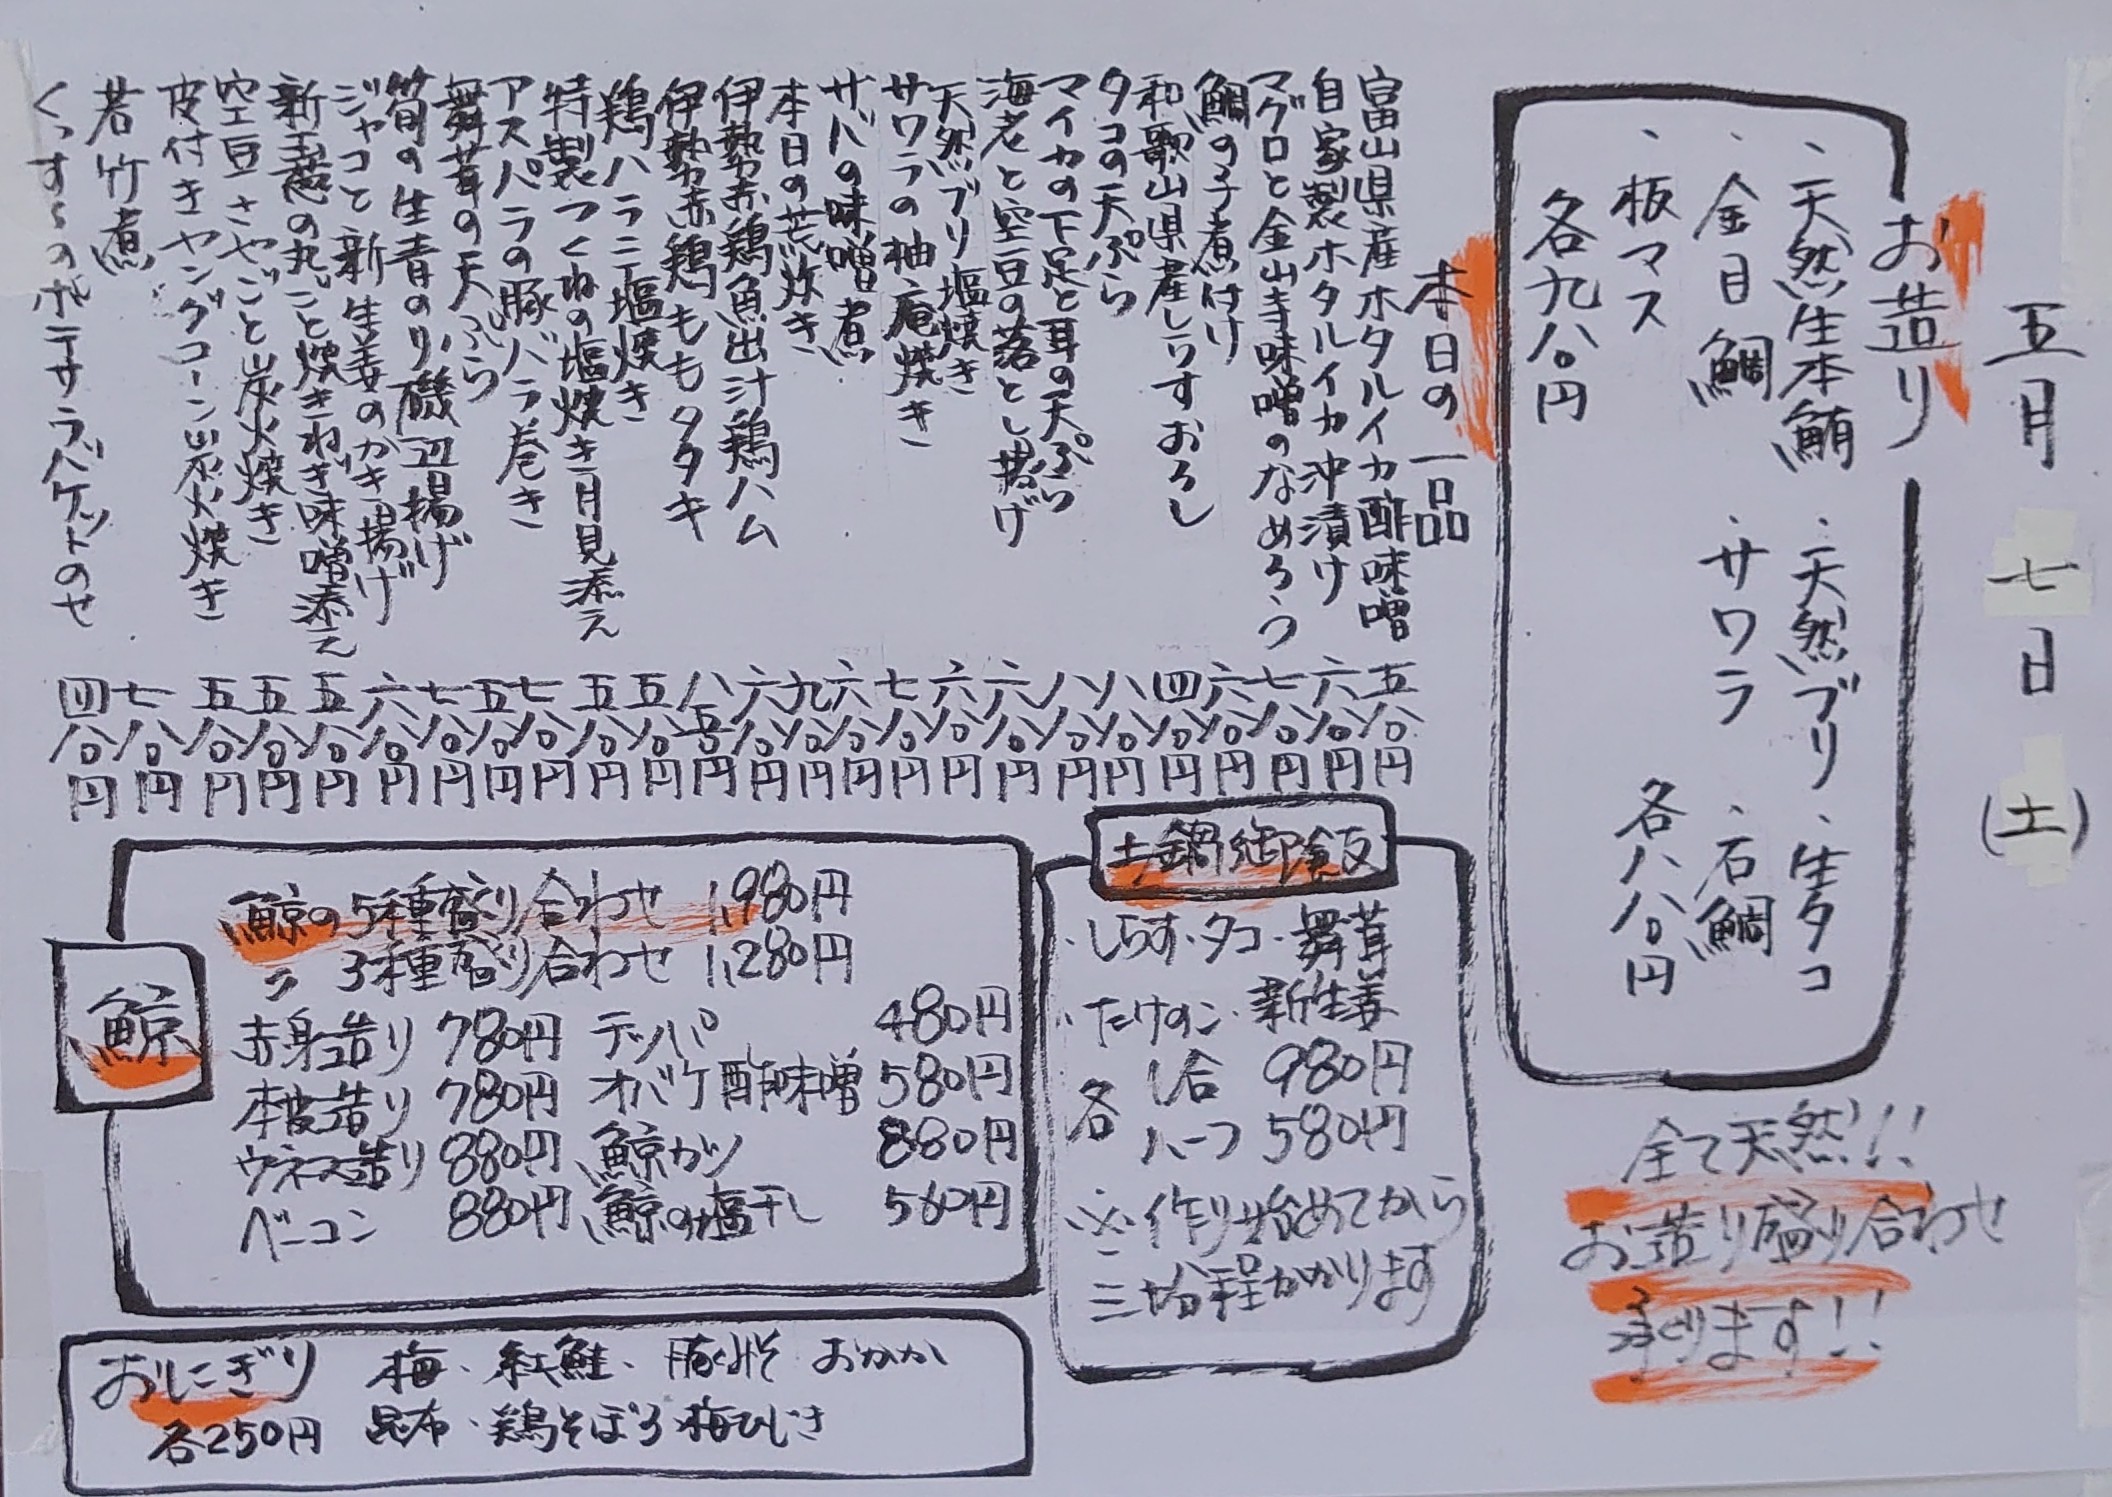 五月七日(土)
お造り
、天然生本鮪 、天然ブリ 、生タコ
、金目鯛 、サワラ 、石鯛
、板マス 各八八〇円
各九八〇円
全て天然!!
お造り盛り合わせ
承ります!!
本日の一品
富山県産ホタルイカ酢味噌 五八〇円
自家製ホタルイカ沖漬け 六八〇円
マグロと金山寺味噌のなめろう 七八〇円
鯛の子煮付け 六八〇円
和歌山県産しらすおろし 四八〇円
タコの天ぷら 八八〇円
マイカの下足と耳の天ぷら 八八〇円
海老と空豆の落とし揚げ 六八〇円
天然ブリ塩焼き 六八〇円
サワラの柚庵焼き 七八〇円
サバの味噌煮 六八〇円
本日の荒炊き 九八〇円
伊勢赤鶏魚出汁鶏ハム 六八〇円
伊勢赤鶏ももタタキ 八五〇円
鶏ハラミ塩焼き 五八〇円
特製つくねの塩焼き月見添え 五八〇円
アスパラの豚バラ巻き 七八〇円
舞茸の天ぷら 五八〇円
筍の生青のり磯辺揚げ 七八〇円
ジャコと新生姜のかき揚げ 六八〇円
新玉葱の丸ごと焼きねぎ味噌添え 五八〇円
空豆さやごと炭火焼き 五八〇円
皮付きヤングコーン炭火焼き 五八〇円
若竹煮 七八〇円
くっすんのポテサラバケットのせ 四八〇円
土鍋御飯
・しらす・タコ・舞茸
・たけのこ・新生姜
各 1合 980円
ハーフ 580円
※作り始めてから
三十分程かかります
鯨
鯨の5種盛り合わせ 1,980円
〃 3種盛り合わせ 1,280円
赤身造り 780円 テッパ 480円
本皮造り 780円 オバケ酢味噌 580円
ウネス造り 880円 鯨カツ 880円
ベーコン 880円 鯨の塩干し 560円
おにぎり 梅・紅鮭・豚みそ おかか
各250円 昆布・鶏そぼろ・梅ひじき